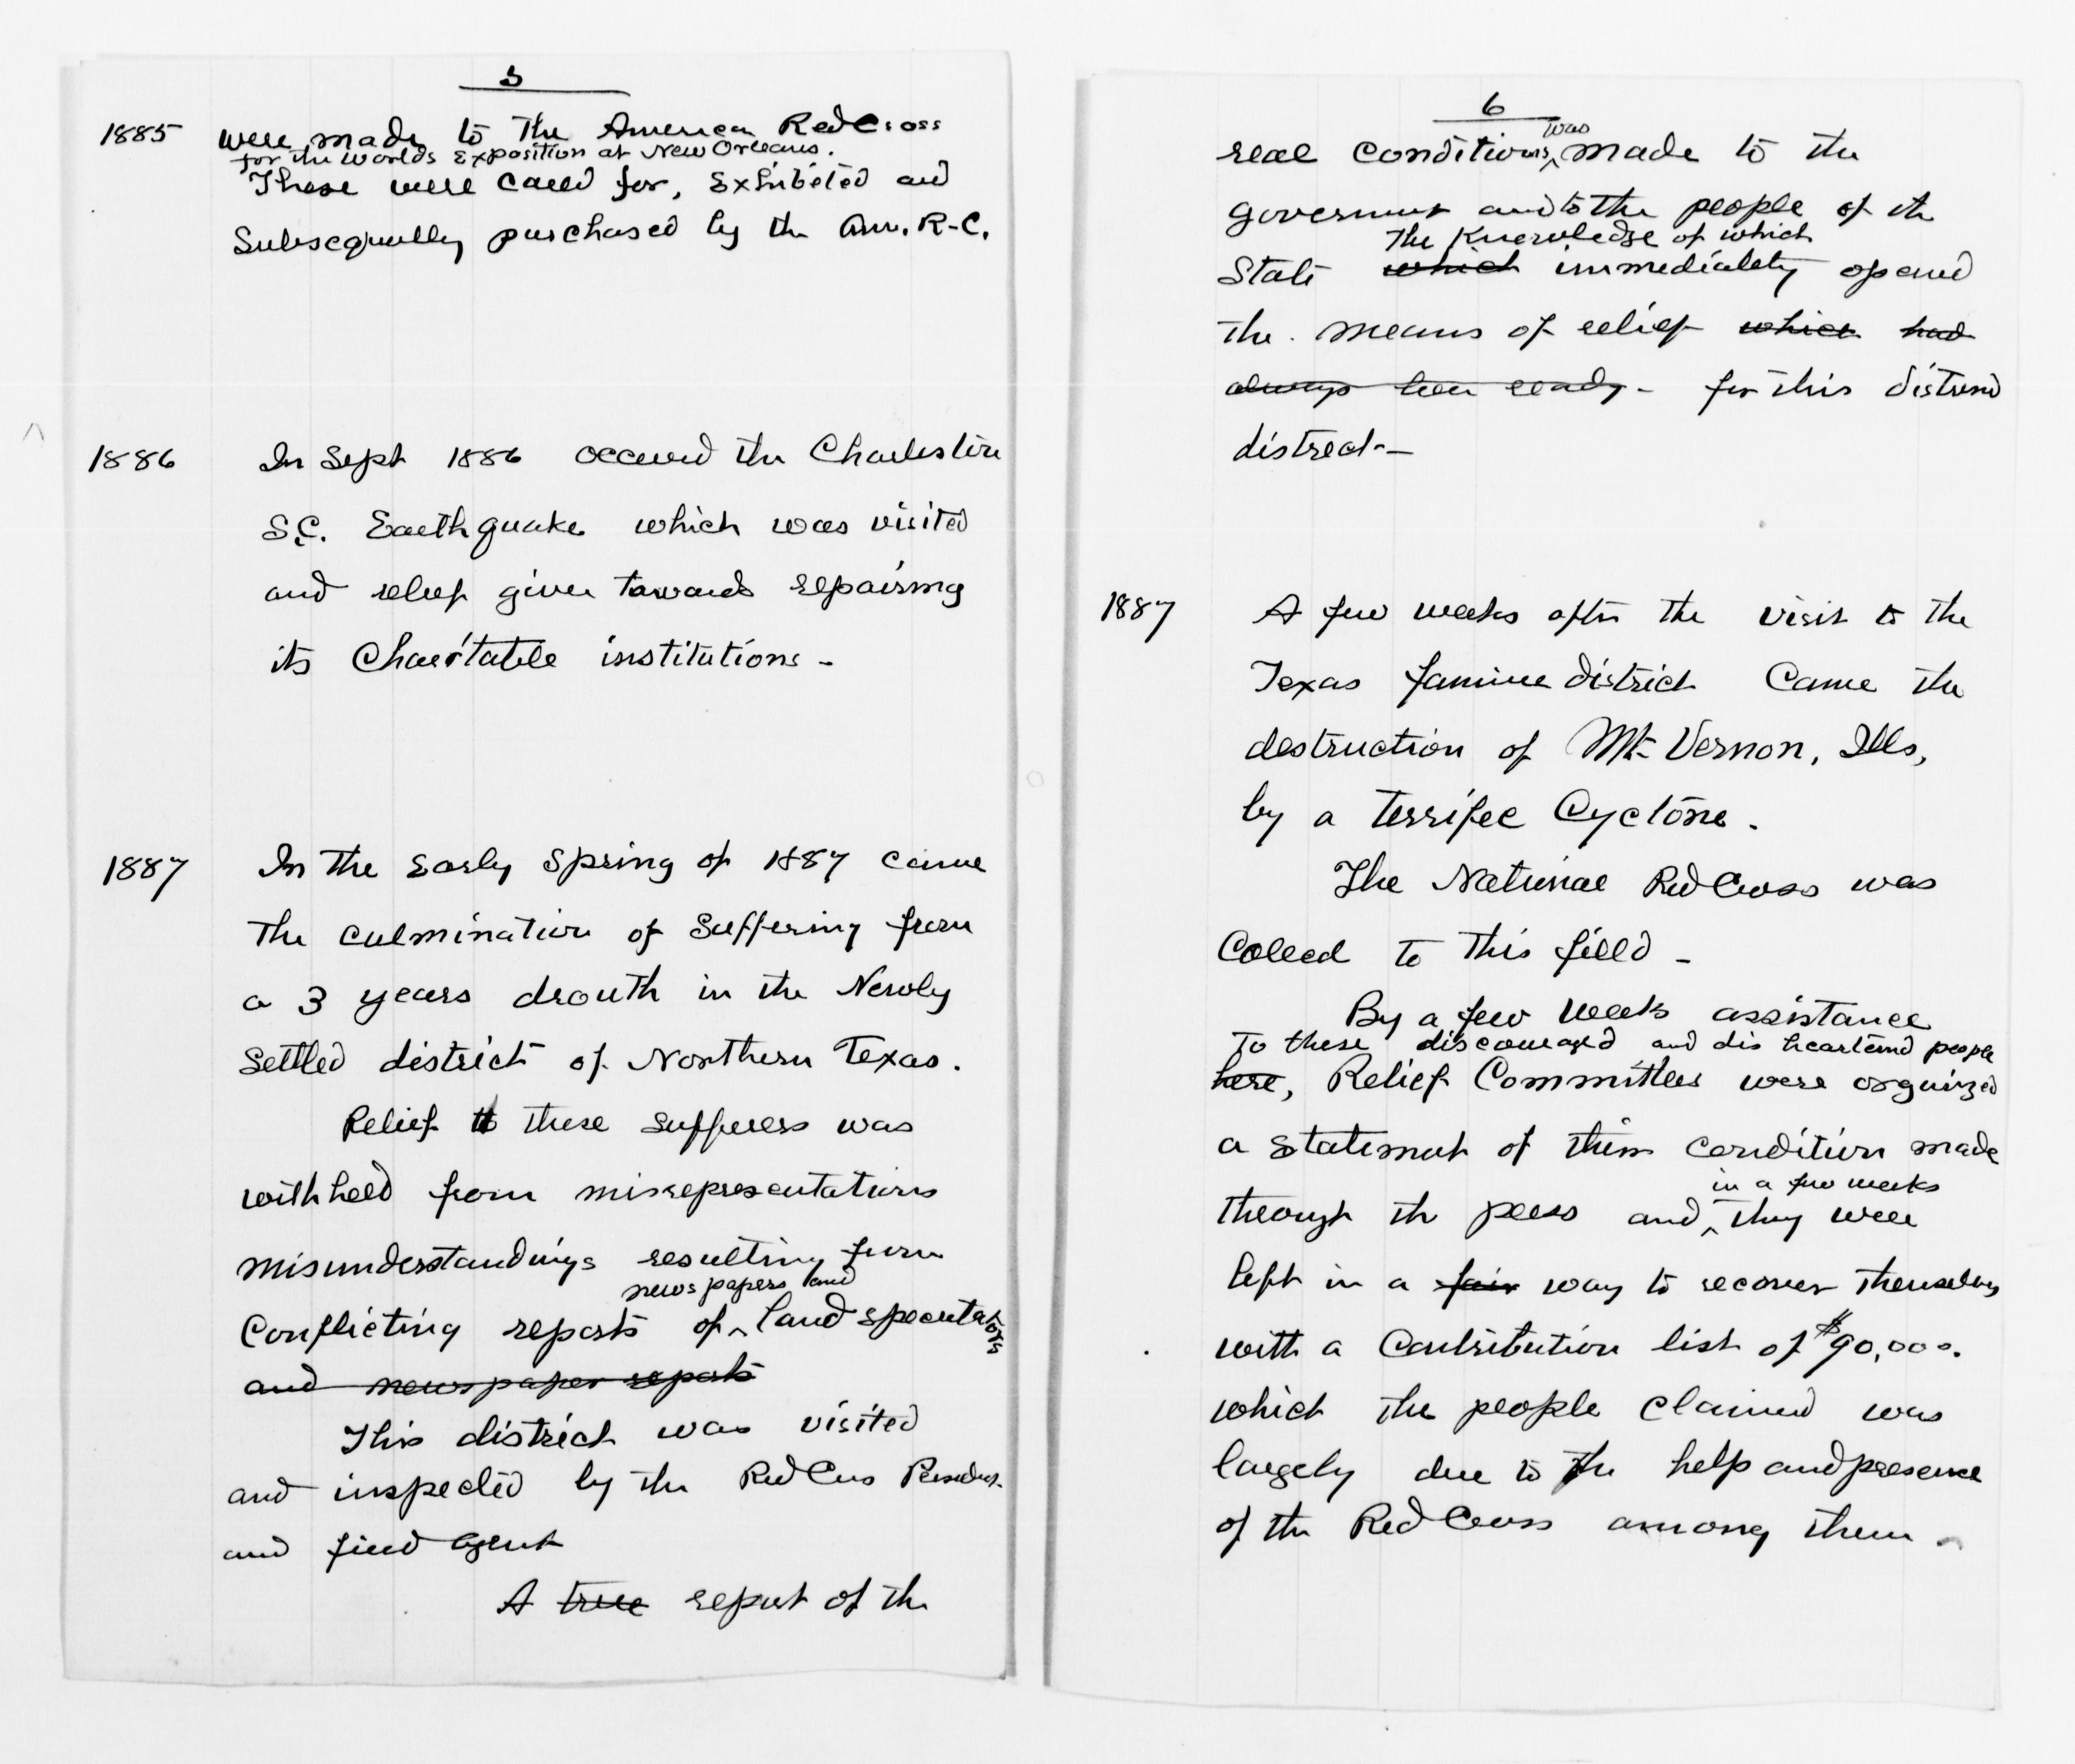 5
1885 were made to the American Red Cross
for the Worlds Exposition at New Orleans.
These were cared for, Exhibited and
Subsequently purchased by the Am. R-C.
1886 In Sept 1886 occured the Charleston
S.C. Earthquake which was visited
and relief given towards repairing
its Charitable institutions -
1887 In the Early Spring of 1887 came
the culmination of Suffering from
a 3 years drouth in the Newly
Settled district of Northern Texas.
Relief to these sufferers was
withheld from misrepresentations
misunderstandings resulting from
newspapers and
Conflicting reports of ^ land specutators
and newspaper reports
This district was visited
and inspected by the Red Cross President
and field agent
A true report of the
6
was
real conditions ^ made to the
goverment and to the people of the
The Knowledge of which
State which immediately opened
the means of relief which had
always been ready - for this distrend
distrect -
1887 A few weeks after the visit to the
Texas famine district Came the
destruction of Mt Vernon, Ills,
by a terrific Cyclone.
The National Red Cross was
Called to this field -
By a few weeks assistance
To these discouraged and dis heartend people
here, Relief Committees were organized
a statement of their condition made
in a few weeks
through the press and ^ they were
left in a fair way to recover themselves
with a Contribution list of $90,000.
which the people claimed was
largely due to the help and presence
of the Red Cross among them -